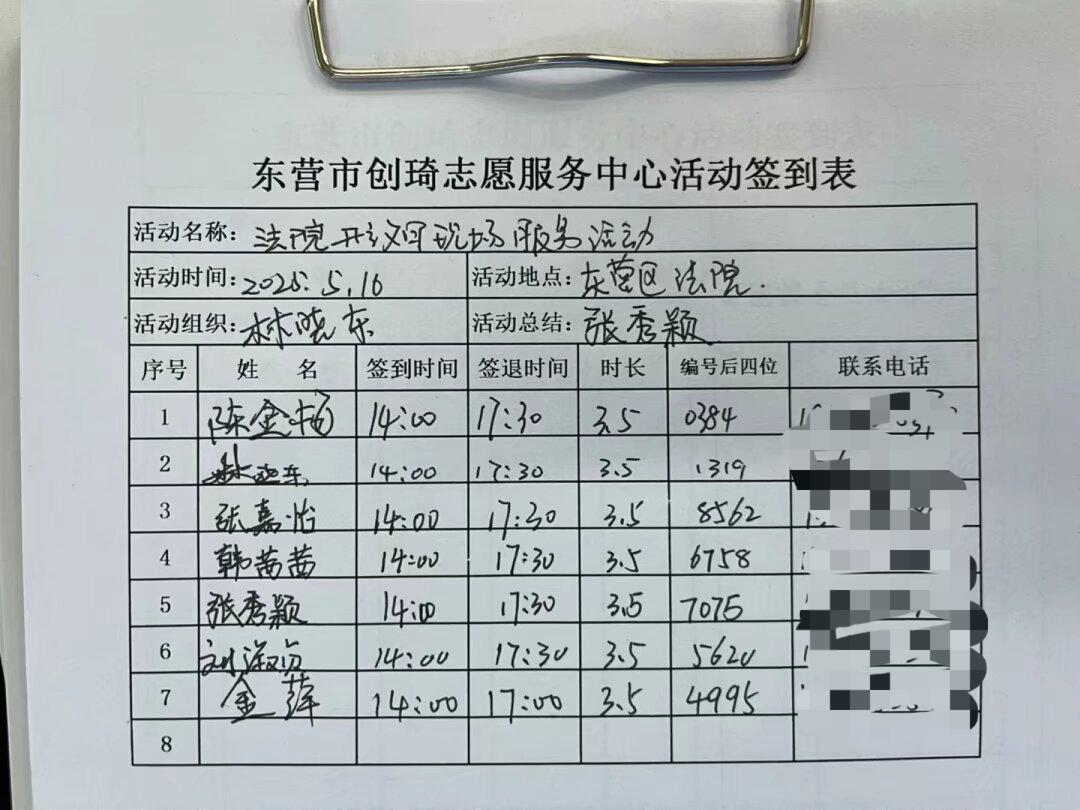 东营市创琦志愿服务中心活动签到表
活动名称: 法院 现场服务活动
活动时间: 2025.5.16 活动地点: 东营区法院.
活动组织: 林晓东 活动总结: 张秀颖
序号 姓 名 签到时间 签退时间 时长 编号后四位 联系电话
1 陈金杨 14:00 17:30 3.5 0384
2 林晓东 14:00 17:30 3.5 1319
3 张嘉怡 14:00 17:30 3.5 8562
4 韩茜茜 14:00 17:30 3.5 6758
5 张秀颖 14:00 17:30 3.5 7075
6 刘淑贞 14:00 17:30 3.5 5620
7 金萍 14:00 17:00 3.5 4995
8